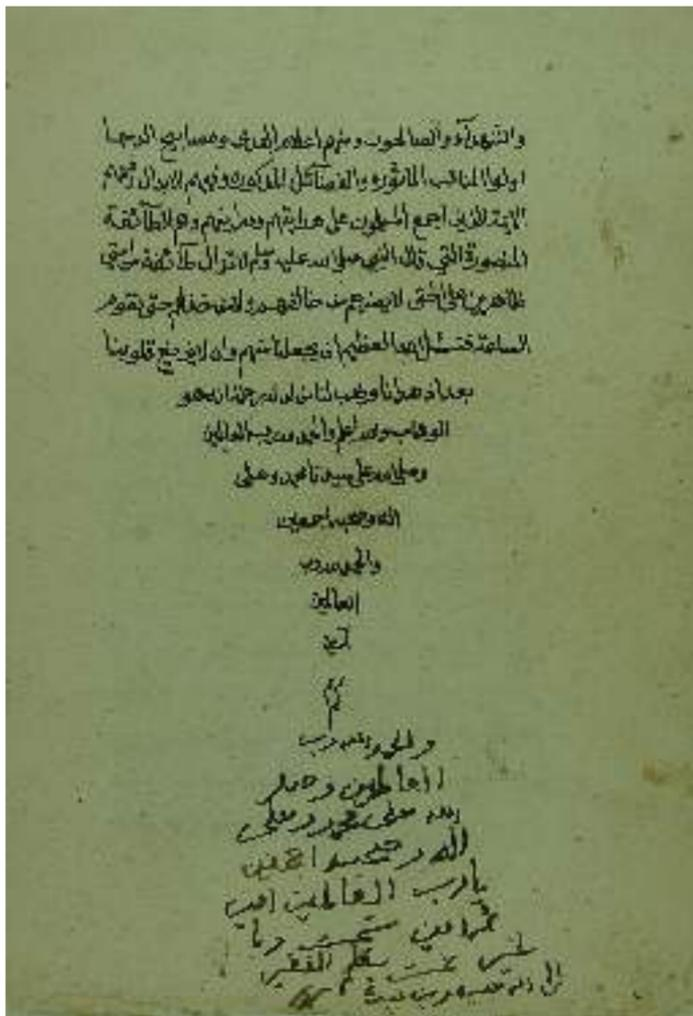 والشهدآء والصالحون ومنهم اعلام الهدى ومصابيح الدجا
اولوا المناقب الماثورة والفضآئل المذكورة وفيهم الابدال وفيهم
الايمة الذين اجمع المسلمون على هدايتهم ودرايتهم وهم الطآئفة
المنصورة التي قال النبي صلى الله عليه وسلم لا تزال طآئفة من امتي
ظاهرين على الحق لا يضرهم من خالفهم ولا من خذلهم حتى تقوم
الساعة فنسئل الله العظيم ان يجعلنا منهم وان لا يزيغ قلوبنا
بعد اذ هدانا ويهب لنا من لدنه رحمة انه هو
الوهاب والله اعلم والحمد لله رب العالمين
وصلى الله على سيدنا محمد وعلى
اله وصحبه اجمعين
والحمد لله رب
العالمين
امين
والحمد لله رب
العالمين وصلى
الله على محمد وعلى
اله وصحبه اجمعين
يا رب العالمين امين
تمت
بقلم الفقير
الى الله